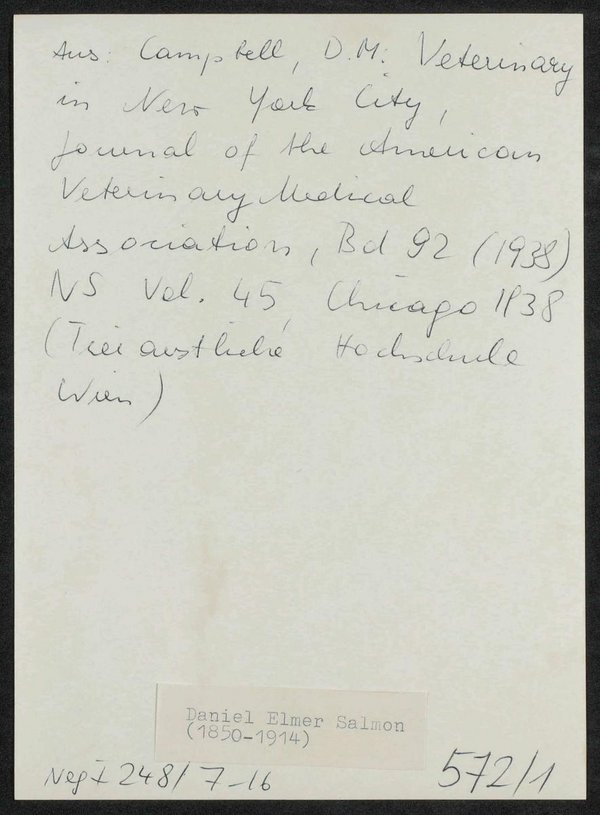 Aus: Campbell, D.M: Veterinary
in New York City,
Journal of the American
Veterinary Medical
Association, Bd 92 (1938)
NS Vol. 45, Chicago 1938
(Tierärztliche Hochschule
Wien)
Daniel Elmer Salmon
(1850-1914)
Neg I 248/7-16
572/1